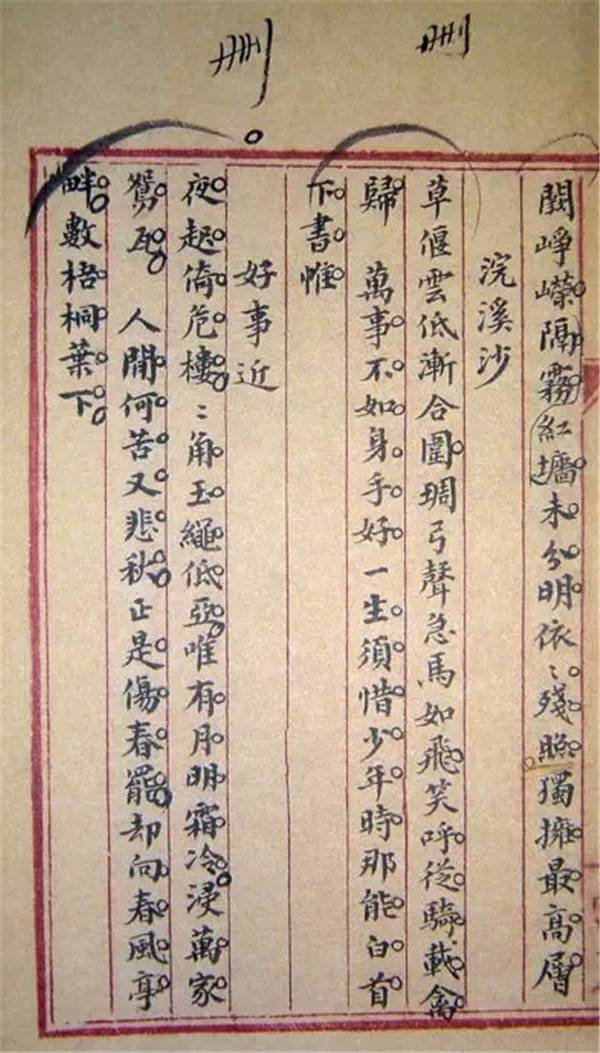 删
删
闕崢嶸隔霧紅墻未分明依〻殘照獨擁最高層
浣溪沙
草偃雲低漸合圍琱弓聲急馬如飛笑呼從騎載禽
歸　萬事不如身手好一生須惜少年時那能白首
下書帷
好事近
夜起倚危樓〻角玉繩低亞唯有月明霜冷浸萬家
鴛瓦　人間何苦又悲秋正是傷春罷却向春風亭
畔數梧桐葉下